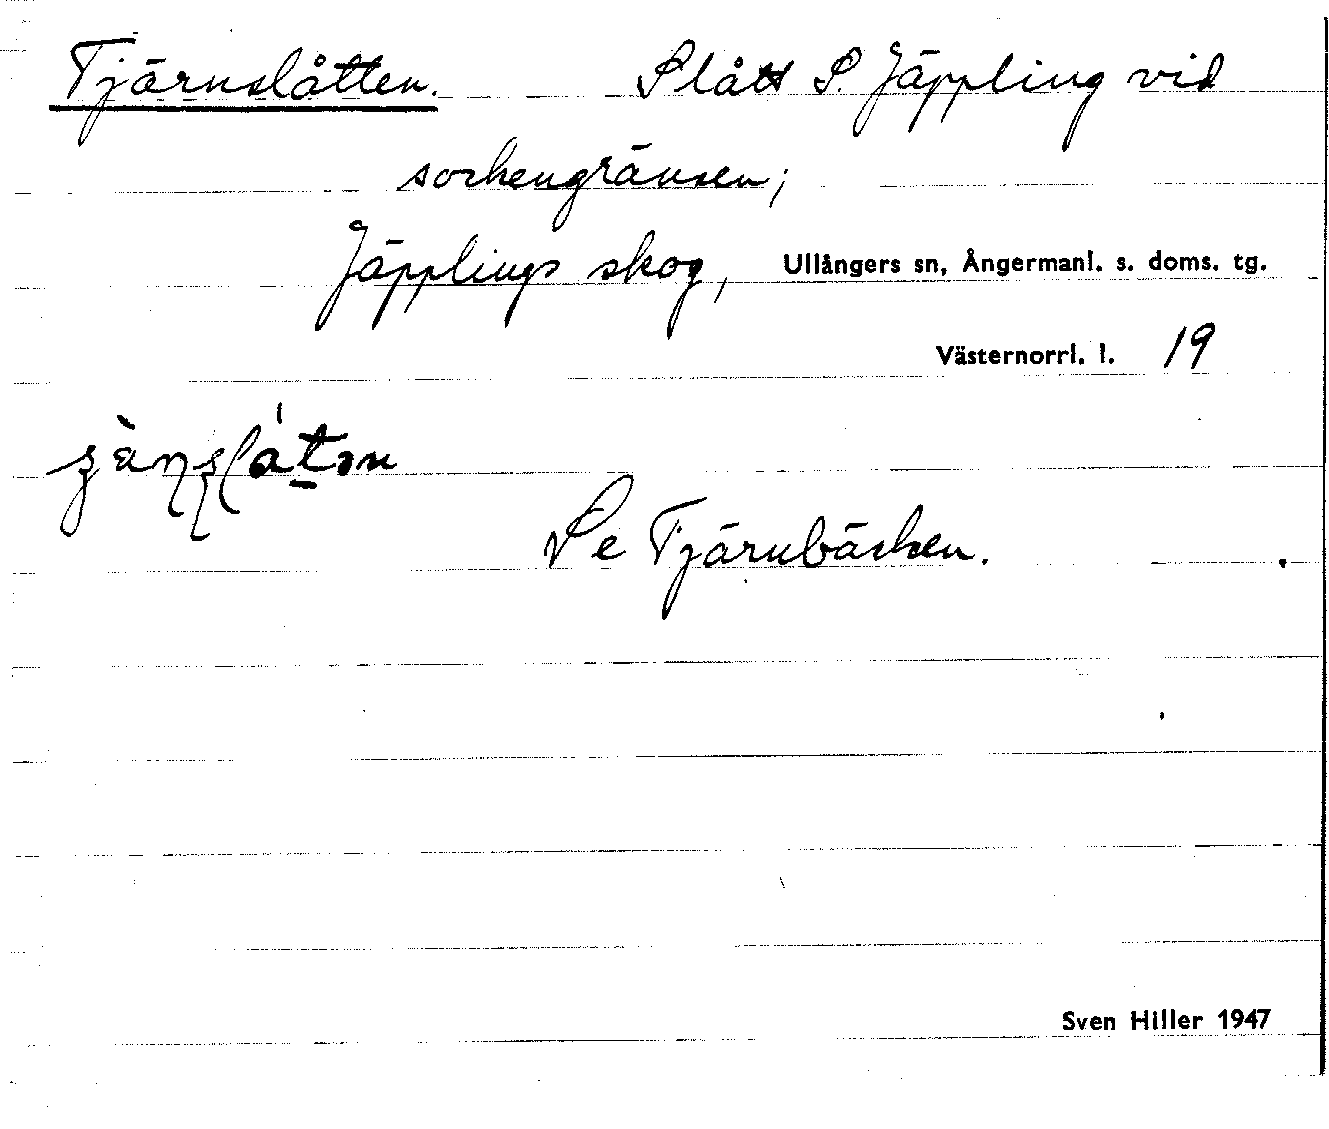 Tjärnslåtten. Slått S. Jäppling vid
sockengränsen;
Jäpplings skog, Ullångers sn, Ångermanl. s. doms. tg.
Västernorrl. l. 19
Se Tjärnbäcken.
Sven Hiller 1947